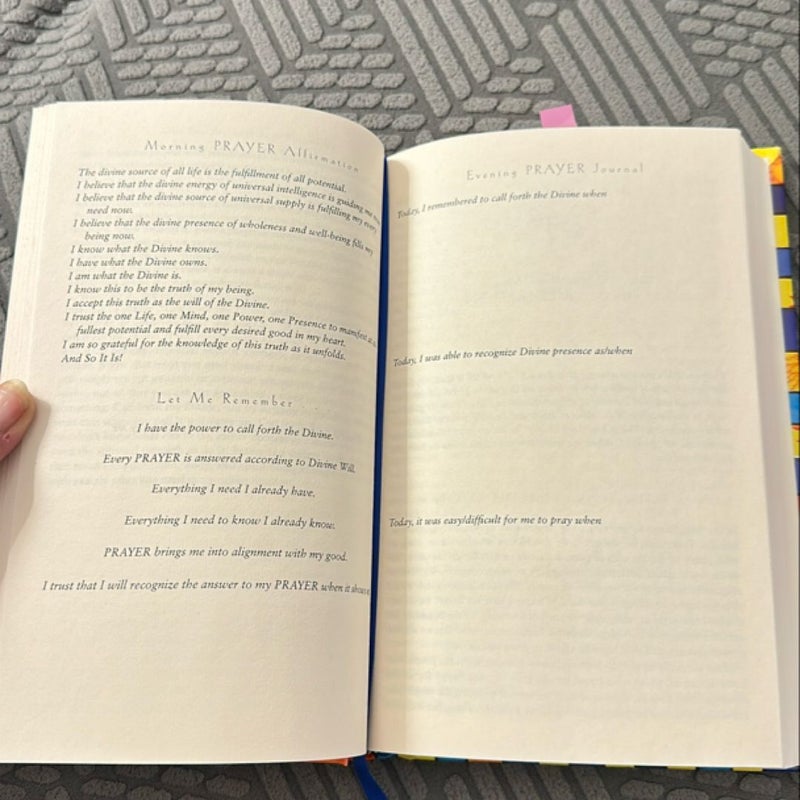 Morning PRAYER Affirmation
The divine source of all life is the fulfillment of all potential.
I believe that the divine energy of universal intelligence is guiding me
I believe that the divine source of universal supply is fulfilling my every
need now.
I believe that the divine presence of wholeness and well-being fills my
being now.
I know what the Divine knows.
I have what the Divine owns.
I am what the Divine is.
I know this to be the truth of my being.
I accept this truth as the will of the Divine.
I trust the one Life, one Mind, one Power, one Presence to manifest
fullest potential and fulfill every desired good in my heart.
I am so grateful for the knowledge of this truth as it unfolds.
And So It Is!
Let Me Remember . . .
I have the power to call forth the Divine.
Every PRAYER is answered according to Divine Will.
Everything I need I already have.
Everything I need to know I already know.
PRAYER brings me into alignment with my good.
I trust that I will recognize the answer to my PRAYER when it
Evening PRAYER Journal
Today, I remembered to call forth the Divine when
Today, I was able to recognize Divine presence as/when
Today, it was easy/difficult for me to pray when